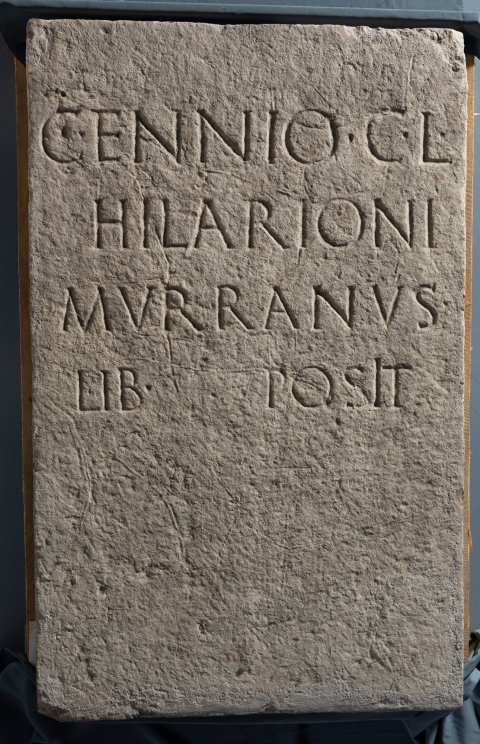 C·ENNIO·C·L
HILARIONI
MVRRANVS·
LIB· POSIT